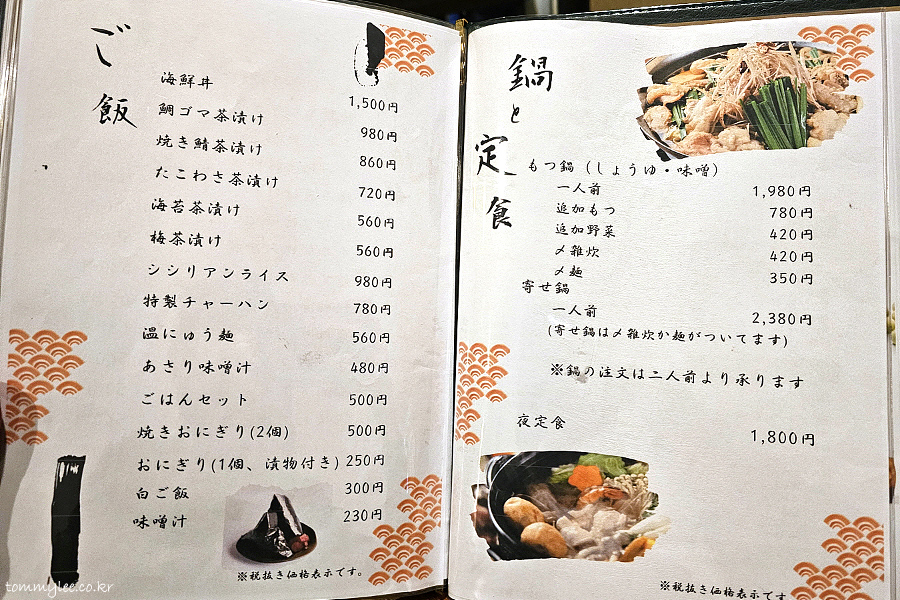 ご飯
海鮮丼 1,500円
鯛ゴマ茶漬け 980円
焼き鯖茶漬け 860円
たこわさ茶漬け 720円
海苔茶漬け 560円
梅茶漬け 560円
シシリアンライス 980円
特製チャーハン 780円
温にゅう麺 560円
あさり味噌汁 480円
ごはんセット 500円
焼きおにぎり(2個) 500円
おにぎり(1個、漬物付き) 250円
白ご飯 300円
味噌汁 230円
※税抜き価格表示です。
鍋と定食
もつ鍋(しょうゆ・味噌)
一人前 1,980円
追加もつ 780円
追加野菜 420円
〆雑炊 420円
〆麺 350円
寄せ鍋
一人前 2,380円
(寄せ鍋は〆雑炊か麺がついてます)
※鍋の注文は二人前より承ります
夜定食 1,800円
※税抜き価格表示です
tommylee.co.kr